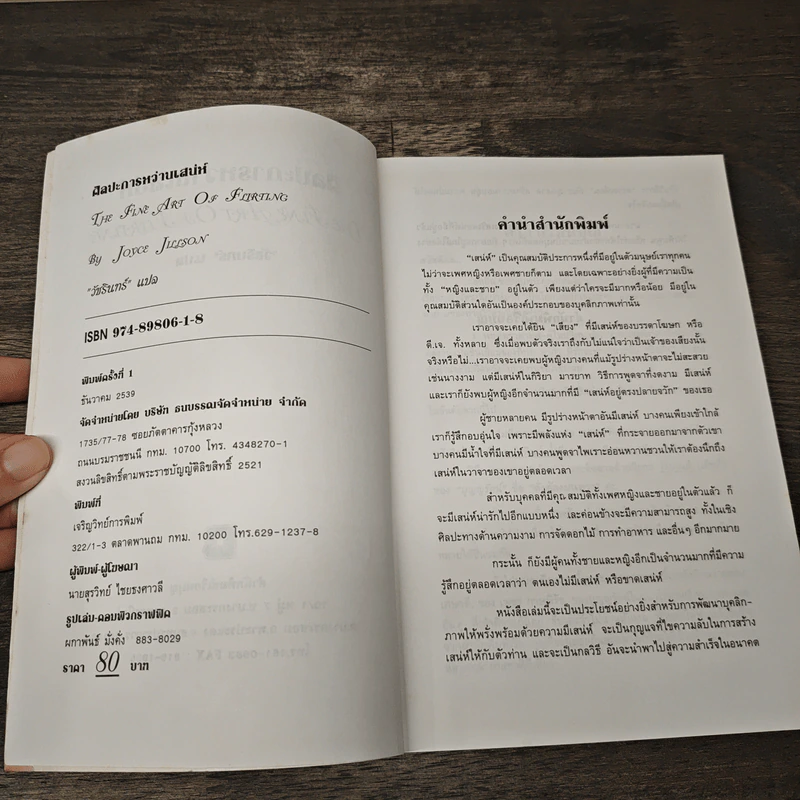 ศิลปะการหว่านเสน่ห์
THE FINE ART OF FLIRTING
By JOYCE JILLSON
"วัชรินทร์" แปล
ISBN 974-89806-1-8
พิมพ์ครั้งที่ 1
ธันวาคม 2539
จัดจำหน่ายโดย บริษัท ธนบรรณจัดจำหน่าย จำกัด
1735/77-78 ซอยภัตตาคารกุ้งหลวง
ถนนบรมราชชนนี กทม. 10700 โทร. 4348270-1
สงวนลิขสิทธิ์ตามพระราชบัญญัติลิขสิทธิ์ 2521
พิมพ์ที่
เจริญวิทย์การพิมพ์
322/1-3 ตลาดพานถม กทม. 10200 โทร.629-1237-8
ผู้พิมพ์-ผู้โฆษณา
นายสุรวิทย์ ไชยธงศาวลี
รูปเล่ม-คอมพิวกราฟฟิค
ผกาพันธ์ มั่งคั่ง 883-8029
ราคา 80 บาท
คำนำสำนักพิมพ์
"เสน่ห์" เป็นคุณสมบัติประการหนึ่งที่มีอยู่ในตัวมนุษย์เราทุกคน
ไม่ว่าจะเพศหญิงหรือเพศชายก็ตาม และโดยเฉพาะอย่างยิ่งผู้ที่มีความเป็น
ทั้ง "หญิงและชาย" อยู่ในตัว เพียงแต่ว่าใครจะมีมากหรือน้อย มีอยู่ใน
คุณสมบัติส่วนใดอันเป็นองค์ประกอบของบุคลิกภาพเท่านั้น
เราอาจจะเคยได้ยิน "เสียง" ที่มีเสน่ห์ของบรรดาโฆษก หรือ
ดี.เจ. ทั้งหลาย ซึ่งเมื่อพบตัวจริงเราถึงกับไม่แน่ใจว่าเป็นเจ้าของเสียงนั้น
จริงหรือไม่...เราอาจจะเคยพบผู้หญิงบางคนที่แม้รูปร่างหน้าตาจะไม่สะสวย
เช่นนางงาม แต่มีเสน่ห์ในกิริยา มารยาท วิธีการพูดจาที่งดงาม มีเสน่ห์
และเราก็ยังพบผู้หญิงอีกจำนวนมากที่มี "เสน่ห์อยู่ตรงปลายจวัก" ของเธอ
ผู้ชายหลายคน มีรูปร่างหน้าตาอันมีเสน่ห์ บางคนเพียงเข้าใกล้
เราก็รู้สึกอบอุ่นใจ เพราะมีพลังแห่ง "เสน่ห์" ที่กระจายออกมาจากตัวเขา
บางคนมีน้ำใจที่มีเสน่ห์ บางคนพูดจาไพเราะอ่อนหวานชวนให้เราต้องนึกถึง
เสน่ห์ในวาจาของเขาอยู่ตลอดเวลา
สำหรับบุคคลที่มีคุณสมบัติทั้งเพศหญิงและชายอยู่ในตัวแล้ว ก็
จะมีเสน่ห์น่ารักไปอีกแบบหนึ่ง และค่อนข้างจะมีความสามารถสูง ทั้งในเชิง
ศิลปะทางด้านความงาม การจัดดอกไม้ การทำอาหาร และอื่นๆ อีกมากมาย
กระนั้น ก็ยังมีผู้คนทั้งชายและหญิงอีกเป็นจำนวนมากที่มีความ
รู้สึกอยู่ตลอดเวลาว่า ตนเองไม่มีเสน่ห์ หรือขาดเสน่ห์
หนังสือเล่มนี้จะเป็นประโยชน์อย่างยิ่งสำหรับการพัฒนาบุคลิก-
ภาพให้พรั่งพร้อมด้วยความมีเสน่ห์ จะเป็นกุญแจที่ไขความลับในการสร้าง
เสน่ห์ให้กับตัวท่าน และจะเป็นกลวิธี อันจะนำพาไปสู่ความสำเร็จในอนาคต